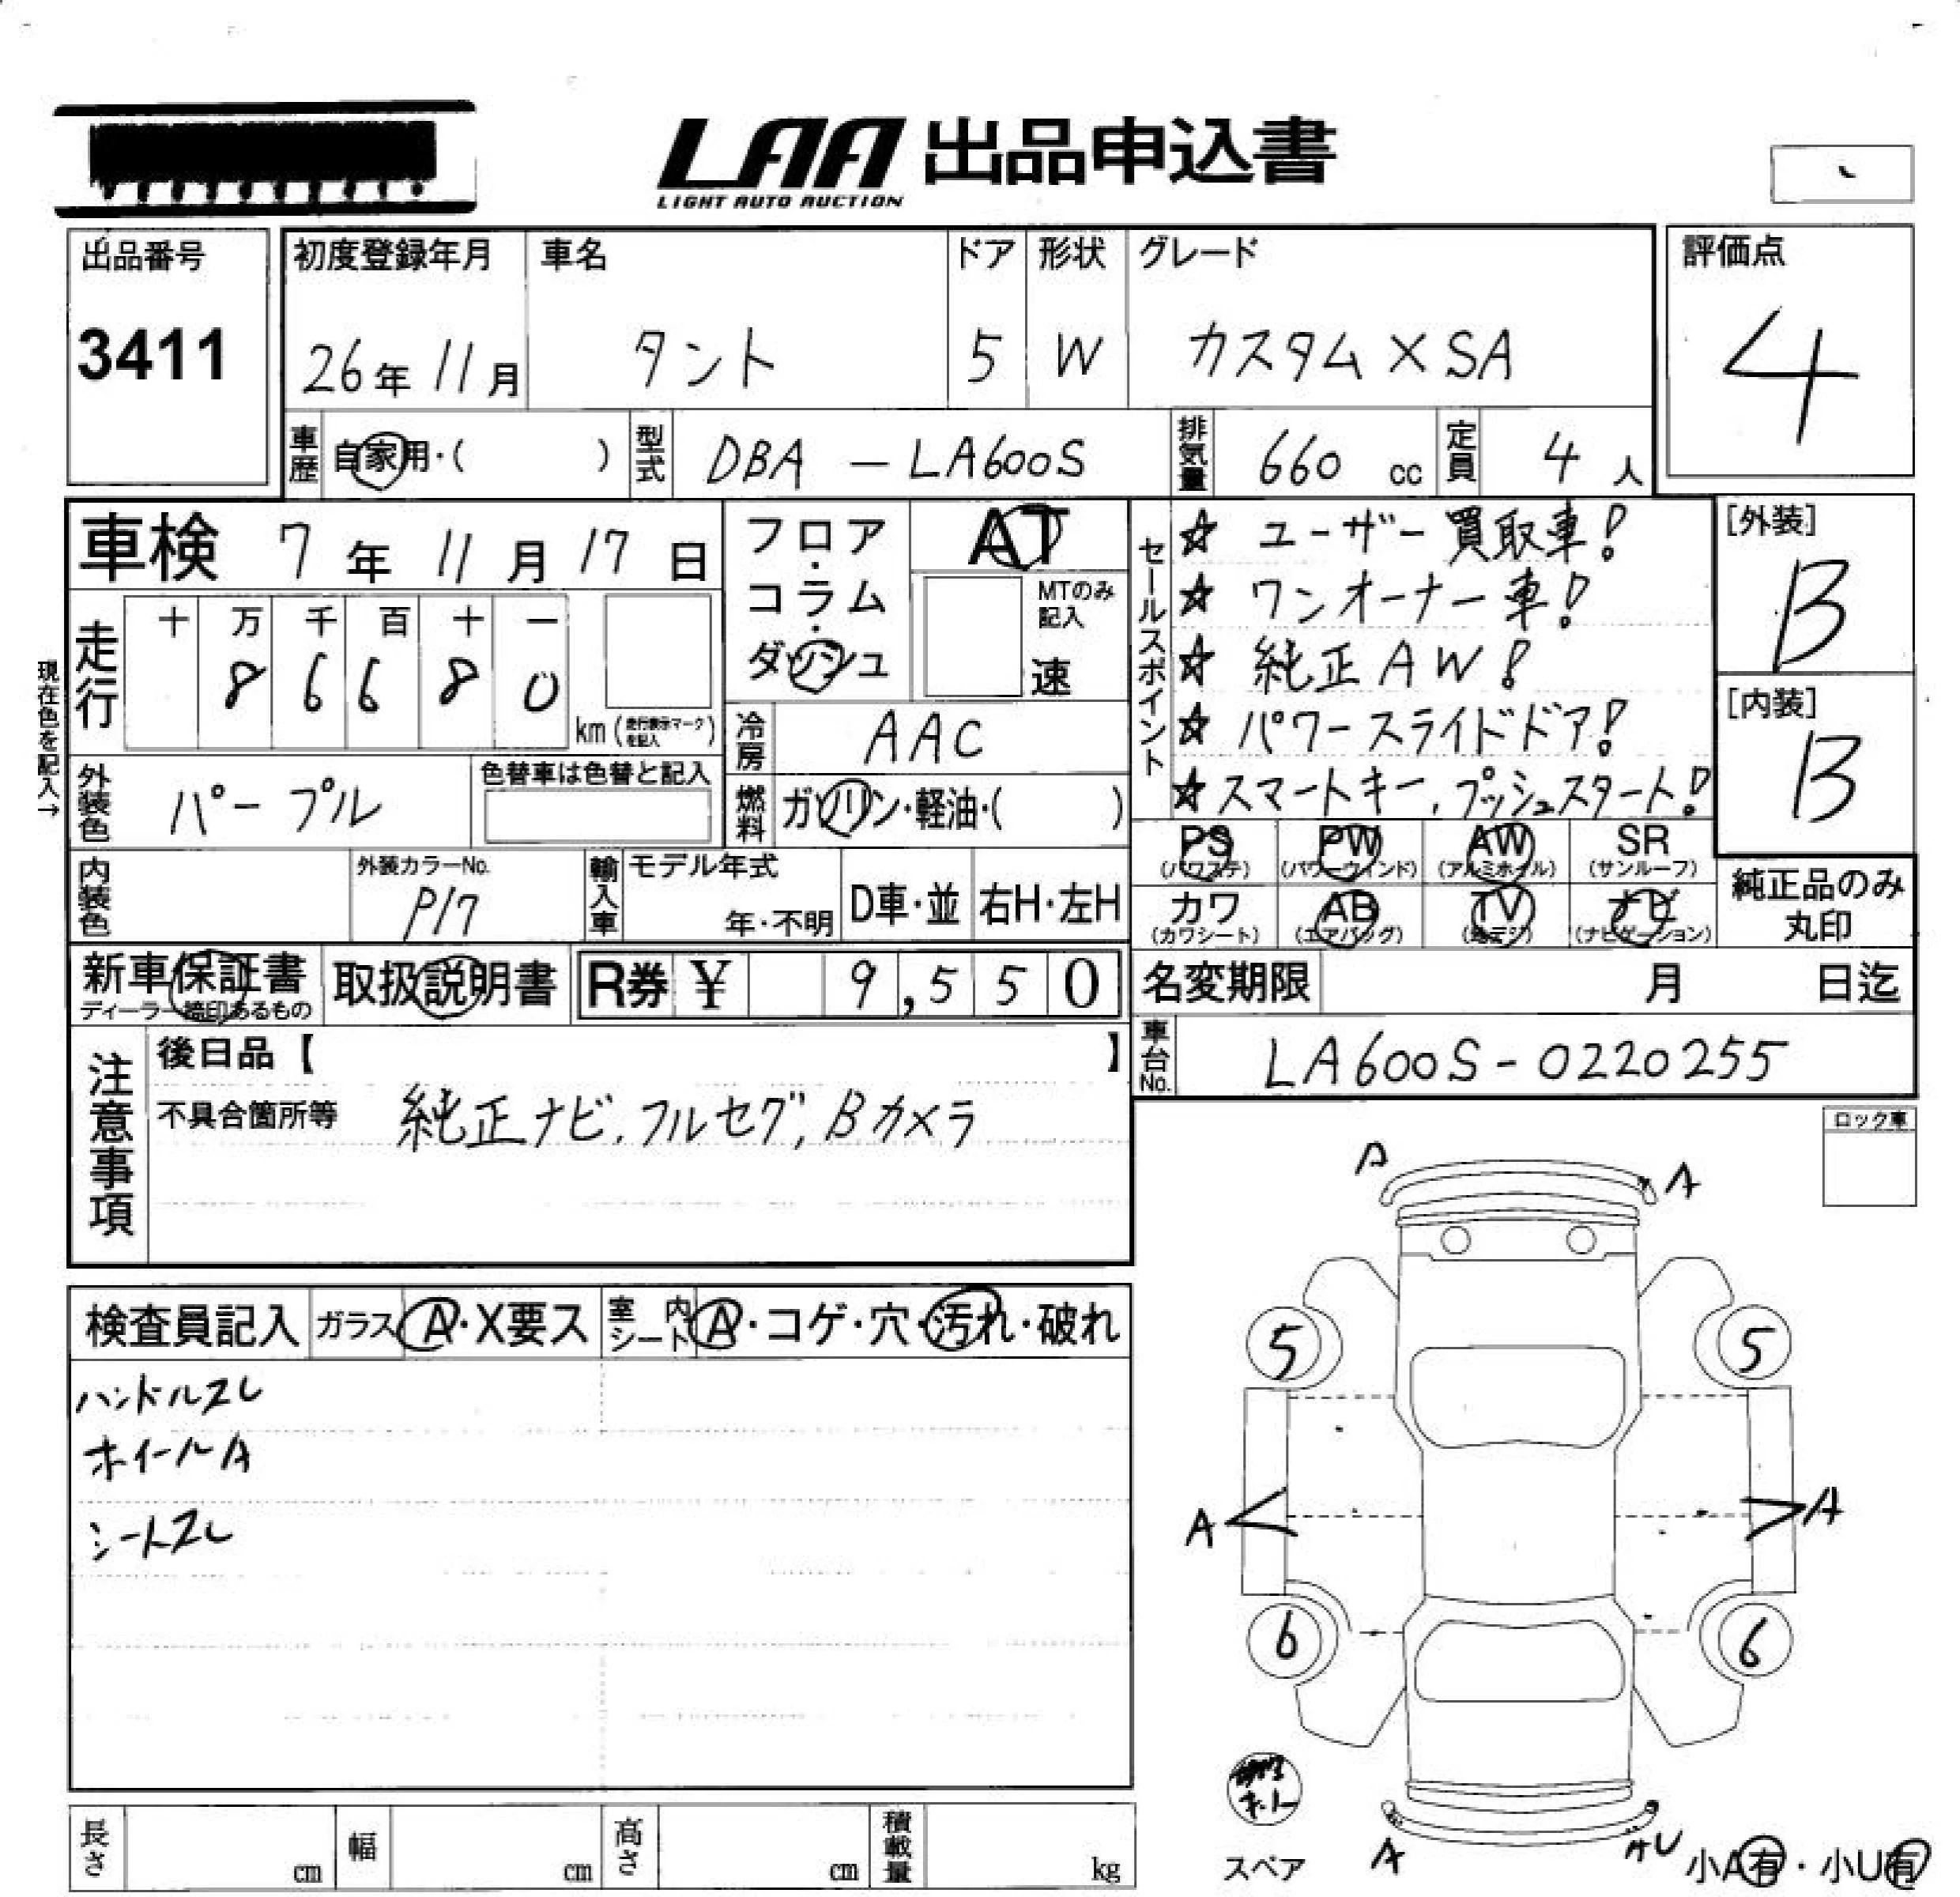 LAA 出品申込書
LIGHT AUTO AUCTION
出品番号
3411
初度登録年月
26年 11月
車名
タント
ドア
5
形状
W
グレード
カスタム X SA
評価点
4
車歴 自家用・( )
型式 DBA - LA600S
排気量 660 cc
定員 4 人
車検 7年 11月 17日
走行
十 万 千 百 十 一
8 6 6 8 0
km (走行表示マークを記入)
現在色を記入→
フロア・コラム・ダッシュ
AT
MTのみ記入
速
冷房 AAC
燃料 ガソリン・軽油・( )
外装色 パープル
色替車は色替と記入
内装色
外装カラーNo.
P17
輸入車
モデル年式
年・不明
D車・並
右H・左H
セールスポイント
☆ ユーザー買取車!
☆ ワンオーナー車!
☆ 純正AW!
☆ パワースライドドア!
☆ スマートキー, プッシュスタート!
[外装]
B
[内装]
B
PS (パワステ)
PW (パワーウィンド)
AW (アルミホイル)
SR (サンルーフ)
カワ (カワシート)
AB (エアバッグ)
TV (地デジ)
ナビ (ナビゲーション)
純正品のみ丸印
新車保証書
ディーラー捺印あるもの
取扱説明書
R券 ¥ 9,550
名変期限 月 日迄
車台No. LA600S-0220255
注意事項
後日品【 】
不具合箇所等 純正ナビ, フルセグ, Bカメラ
ロック車
検査員記入
ガラス A・X要ス
室内シート A・コゲ・穴・汚れ・破れ
ハンドルスレ
ホイールA
シートスレ
A
A
5
5
A
A
6
6
スペア
A
AU
小A有・小U有
長さ cm
幅 cm
高さ cm
積載量 kg